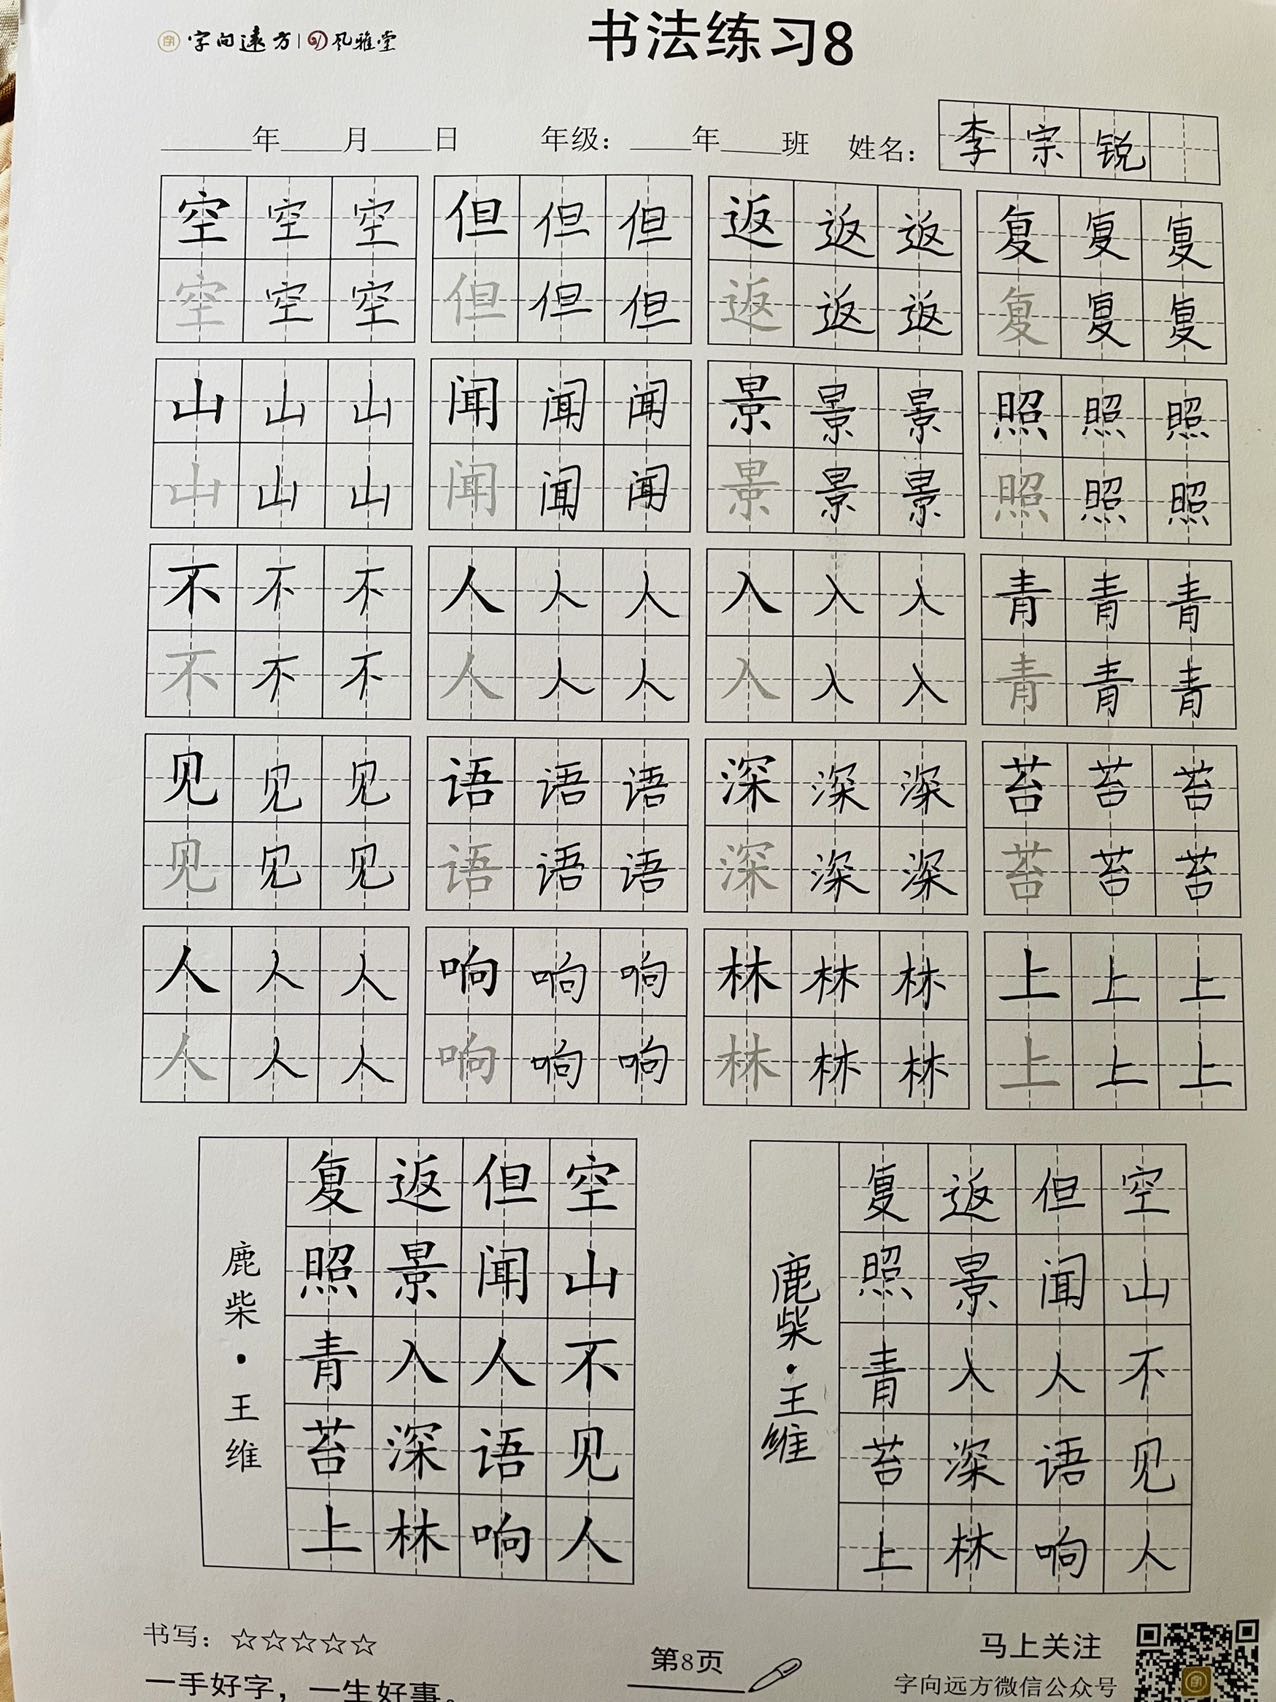 字向远方 | 风雅堂
书法练习8
______年____月____日 年级：____年____班 姓名：李宗锐
空空空 但但但 返返返 复复复
空空空 但但但 返返返 复复复
山山山 闻闻闻 景景景 照照照
山山山 闻闻闻 景景景 照照照
不不不 人人人 入入入 青青青
不不不 人人人 入入入 青青青
见见见 语语语 深深深 苔苔苔
见见见 语语语 深深深 苔苔苔
人人人 响响响 林林林 上上上
人人人 响响响 林林林 上上上
空山不见人
但闻人语响
返景入深林
复照青苔上
鹿柴·王维
空山不见人
但闻人语响
返景入深林
复照青苔上
鹿柴·王维
书写：☆☆☆☆☆
一手好字，一生好事。
第8页
马上关注
字向远方微信公众号